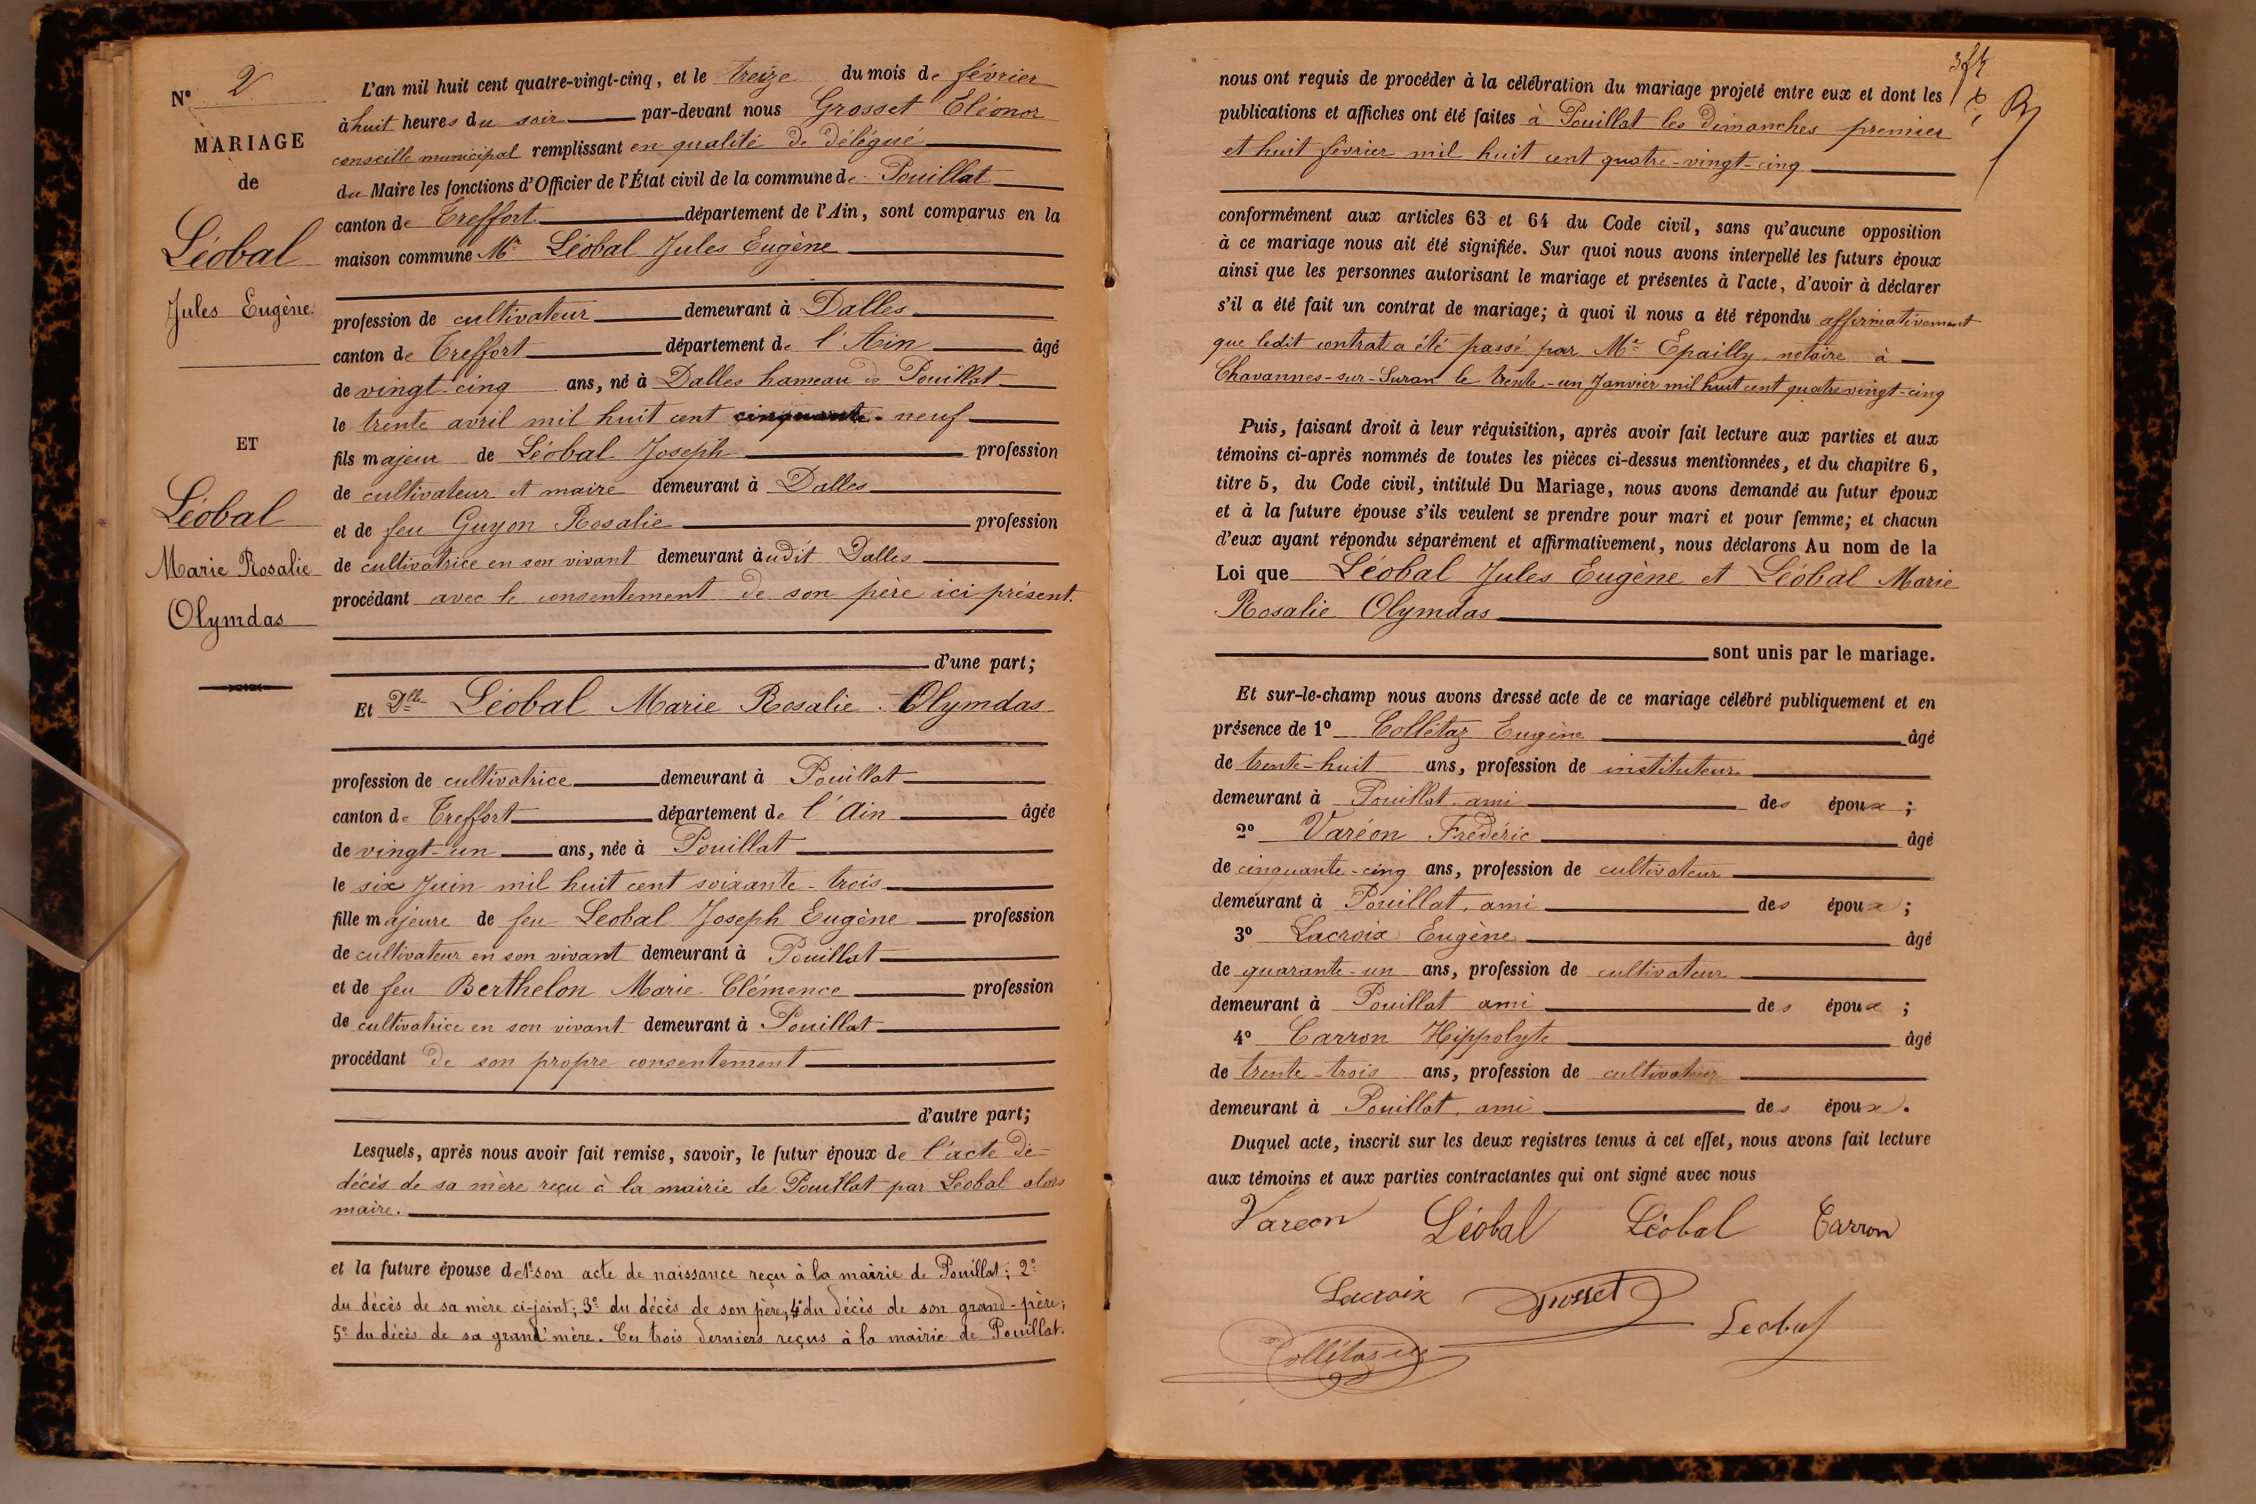 N° 2
MARIAGE
de
Léobal
Jules Eugène
ET
Léobal
Marie Rosalie
Olymdas
L'an mil huit cent quatre-vingt-cinq, et le treize du mois de février
à huit heures du soir par-devant nous Grosset Eléonor
conseille municipal remplissant en qualité de délégué
du Maire les fonctions d'Officier de l'État civil de la commune de Pouillat
canton de Treffort département de l'Ain, sont comparus en la
maison commune Mr Léobal Jules Eugène
profession de cultivateur demeurant à Dalles
canton de Treffort département de l'Ain âgé
de vingt-cinq ans, né à Dalles hameau de Pouillat
le trente avril mil huit cent cinquante-neuf
fils majeur de Léobal Joseph profession
de cultivateur et maire demeurant à Dalles
et de feu Guyon Rosalie profession
de cultivatrice en son vivant demeurant àudit Dalles
procédant avec le consentement de son père ici présent.
d'une part;
Et Dlle Léobal Marie Rosalie Olymdas
profession de cultivatrice demeurant à Pouillat
canton de Treffort département de l'Ain âgée
de vingt-un ans, née à Pouillat
le six Juin mil huit cent soixante-trois
fille majeure de feu Leobal Joseph Eugène profession
de cultivateur en son vivant demeurant à Pouillat
et de feu Berthelon Marie Clémence profession
de cultivatrice en son vivant demeurant à Pouillat
procédant de son propre consentement
d'autre part;
Lesquels, après nous avoir fait remise, savoir, le futur époux de l'acte de
décès de sa mère reçu à la mairie de Pouillat par Léobal alors
maire.
et la future épouse de 1° son acte de naissance reçu à la mairie de Pouillat; 2°
du décès de sa mère ci-joint; 3° du décès de son père; 4° du décès de son grand-père;
5° du décès de sa grand'mère. Ces trois derniers reçus à la mairie de Pouillat.
nous ont requis de procéder à la célébration du mariage projeté entre eux et dont les
publications et affiches ont été faites à Pouillat les dimanches premier
et huit février mil huit cent quatre-vingt-cinq
conformément aux articles 63 et 64 du Code civil, sans qu'aucune opposition
à ce mariage nous ait été signifiée. Sur quoi nous avons interpellé les futurs époux
ainsi que les personnes autorisant le mariage et présentes à l'acte, d'avoir à déclarer
s'il a été fait un contrat de mariage; à quoi il nous a été répondu affirmativement
que ledit contrat a été passé par Me Epailly notaire à
Chavannes-sur-Suran le trente-un Janvier mil huit cent quatre vingt-cinq
Puis, faisant droit à leur réquisition, après avoir fait lecture aux parties et aux
témoins ci-après nommés de toutes les pièces ci-dessus mentionnées, et du chapitre 6,
titre 5, du Code civil, intitulé Du Mariage, nous avons demandé au futur époux
et à la future épouse s'ils veulent se prendre pour mari et pour femme; et chacun
d'eux ayant répondu séparément et affirmativement, nous déclarons Au nom de la
Loi que Léobal Jules Eugène et Léobal Marie
Rosalie Olymdas
sont unis par le mariage.
Et sur-le-champ nous avons dressé acte de ce mariage célébré publiquement et en
présence de 1° Collétaz Eugène âgé
de trente-huit ans, profession de instituteur
demeurant à Pouillat ami des époux;
2° Varéon Frédéric âgé
de cinquante-cinq ans, profession de cultivateur
demeurant à Pouillat, ami des époux;
3° Lacroix Eugène âgé
de quarante-un ans, profession de cultivateur
demeurant à Pouillat ami des époux;
4° Carron Hippolyte âgé
de trente-trois ans, profession de cultivateur
demeurant à Pouillat, ami des époux.
Duquel acte, inscrit sur les deux registres tenus à cet effet, nous avons fait lecture
aux témoins et aux parties contractantes qui ont signé avec nous
Vareon Léobal Léobal Carron
Lacroix Grosset Leobal
Collétaz